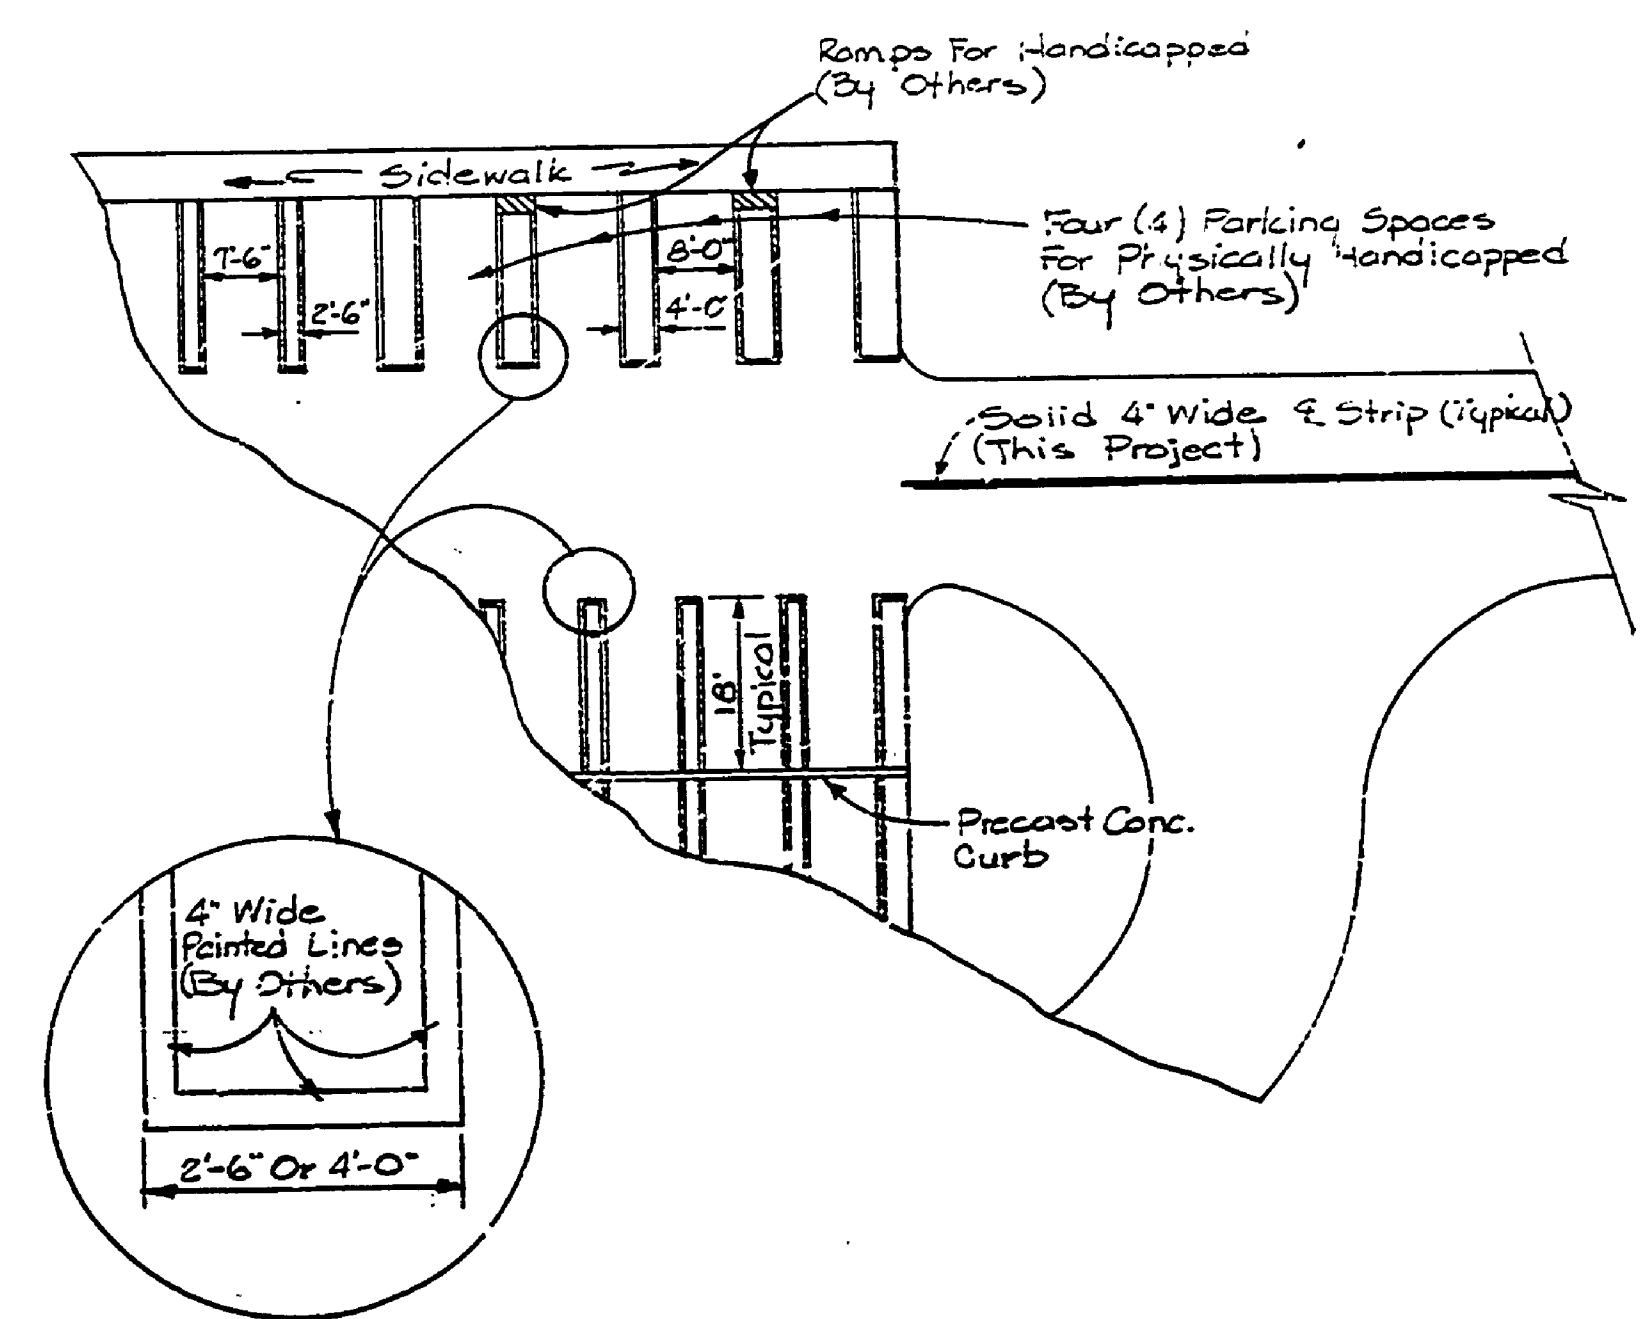 Ramps For Handicapped
(By Others)
Sidewalk
Four (4) Parking Spaces
For Physically Handicapped
(By Others)
7'-6"
8'-0"
2'-6"
4'-0"
Solid 4" Wide ℄ Strip (Typical)
(This Project)
18'
Typical
Precast Conc.
Curb
4" Wide
Painted Lines
(By Others)
2'-6" Or 4'-0"